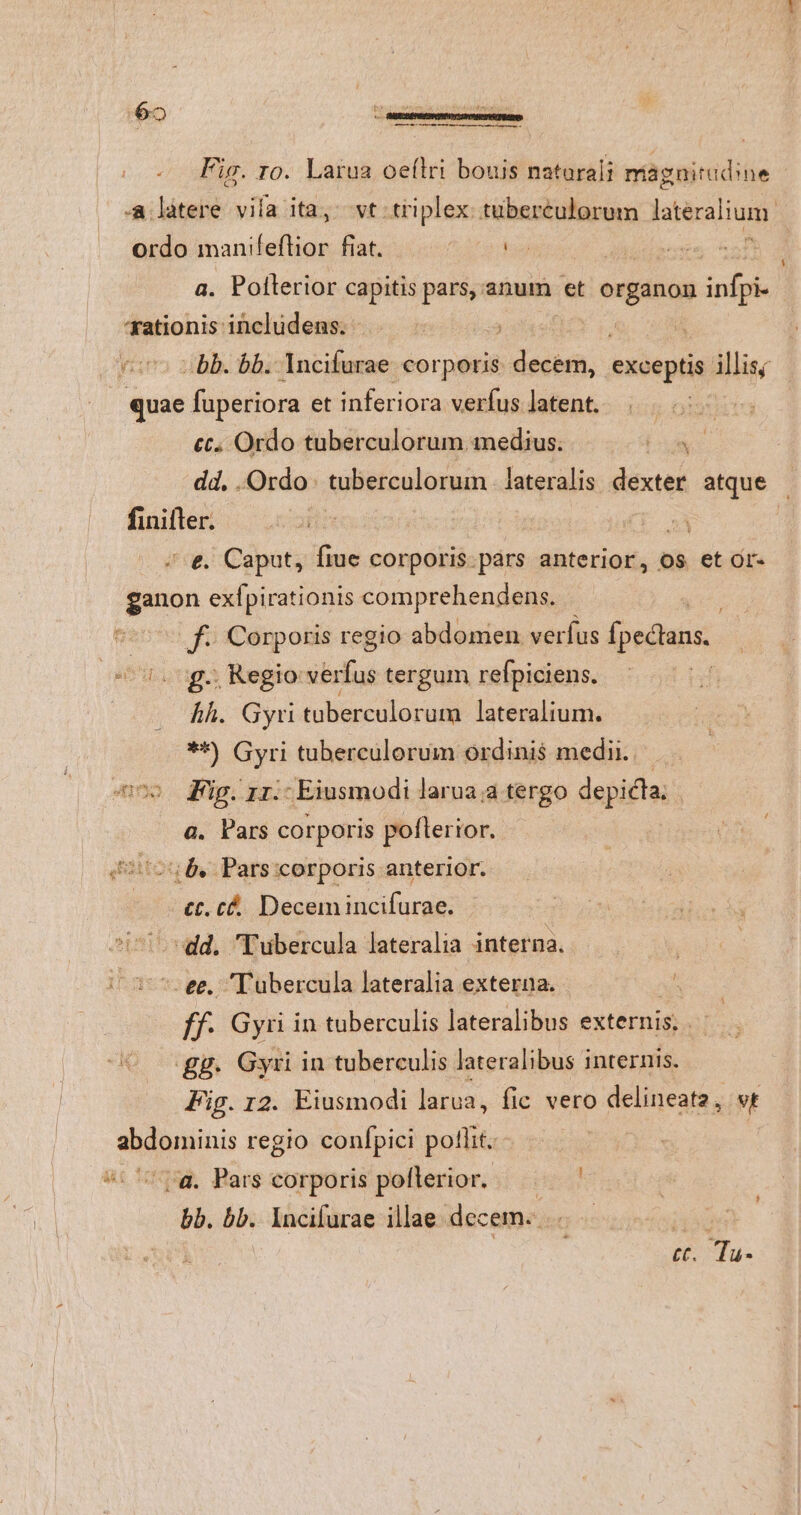 60
Fig. 10. Larua oeſtri bouis naturali magnitudine
a latere viſa ita, vt triplex tuberculorum lateralium
ordo manifeſtior fiat.
a. Poſterior capitis pars, anum et organon inſpi-
rationis includens.
bb. bb. Inciſurae corporis decem, exceptis illis,
quae ſuperiora et inferiora verſus latent.
cc. Ordo tuberculorum medius.
dd. Ordo tuberculorum lateralis dexter atque
ſiniſter.
e. Caput, ſiue corporis pars anterior, os et or-
ganon exſpirationis comprehendens.
f. Corporis regio abdomen verſus ſpectans.
g. Regio verſus tergum reſpiciens.
hh. Gyri tuberculorum lateralium.
**) Gyri tuberculorum ordinis medii.
Fig. 11. Eiusmodi larua a tergo depicta.
a. Pars corporis poſterior.
b. Pars corporis anterior.
cc. cc. Decem inciſurae.
dd. Tubercula lateralia interna.
ee. Tubercula lateralia externa.
ff. Gyri in tuberculis lateralibus externis.
gg. Gyri in tuberculis lateralibus internis.
Fig. 12. Eiusmodi larua, ſic vero delineata, vt
abdominis regio conſpici poſſit.
a. Pars corporis poſterior.
bb. bb. Inciſurae illae decem.
cc. Tu-